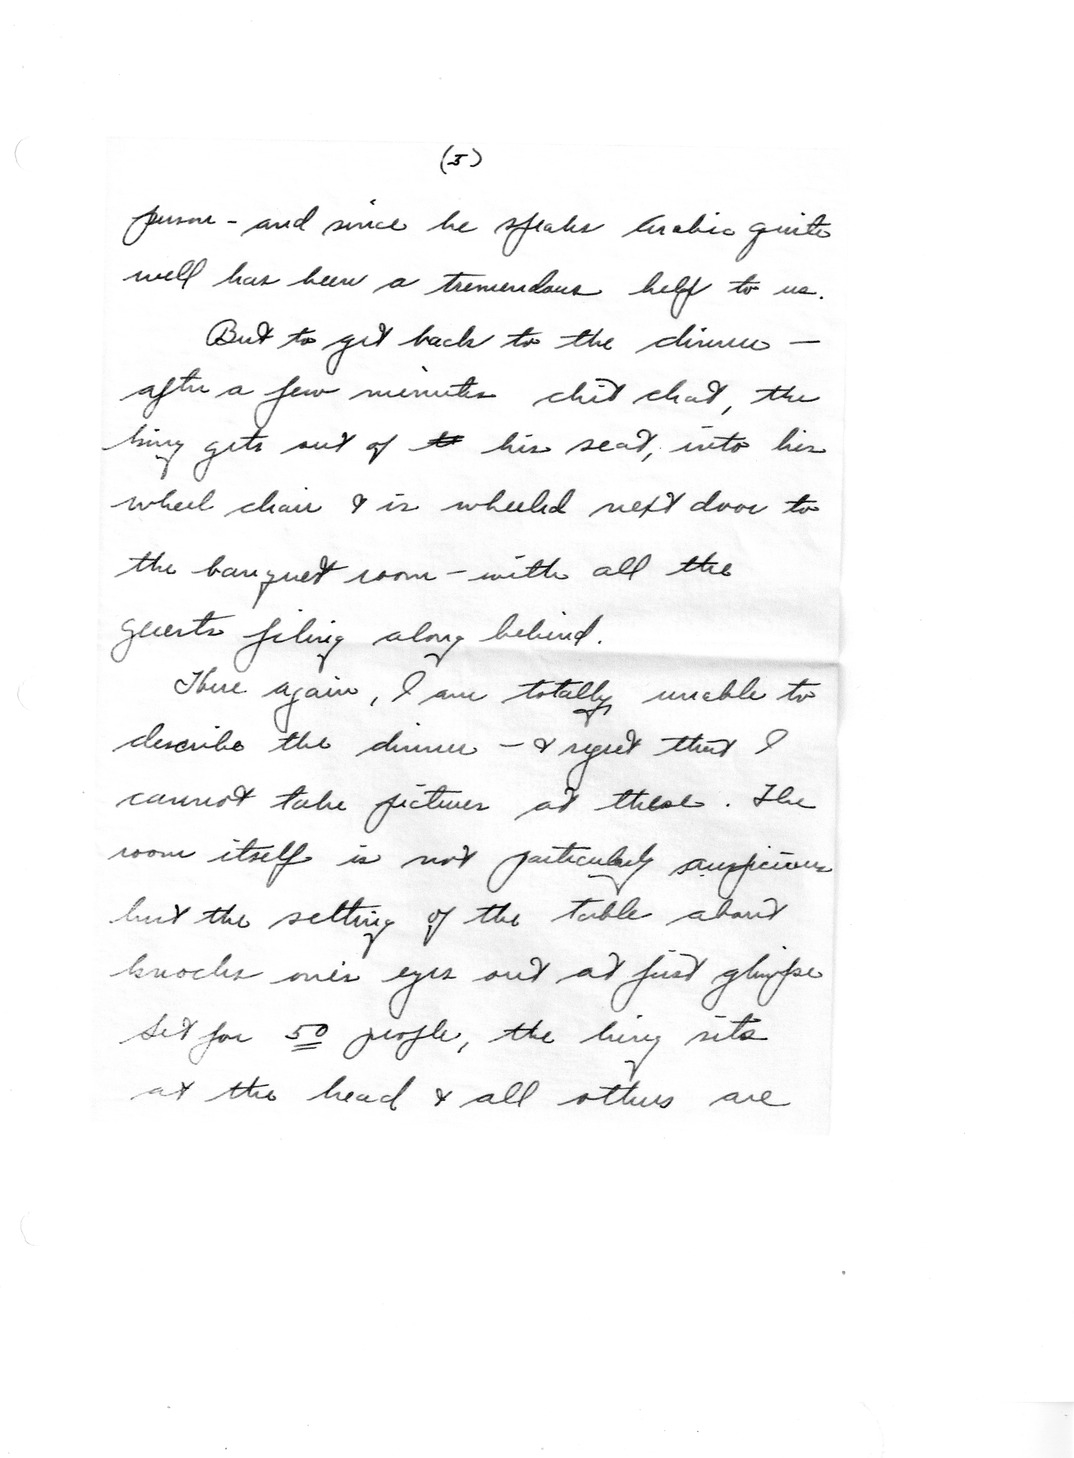 (5)
person - and since he speaks Arabic quite
well has been a tremendous help to us.
But to get back to the dinner -
after a few minutes chit chat, the
king gets out of his seat, into his
wheel chair & is wheeled next door to
the banquet room - with all the
guests filing along behind.
There again, I am totally unable to
describe the dinner - & regret that I
cannot take pictures at these. The
room itself is not particularly auspicious
but the setting of the table about
knocks one's eyes out at first glimpse
Set for 50 people, the king sits
at the head & all others are